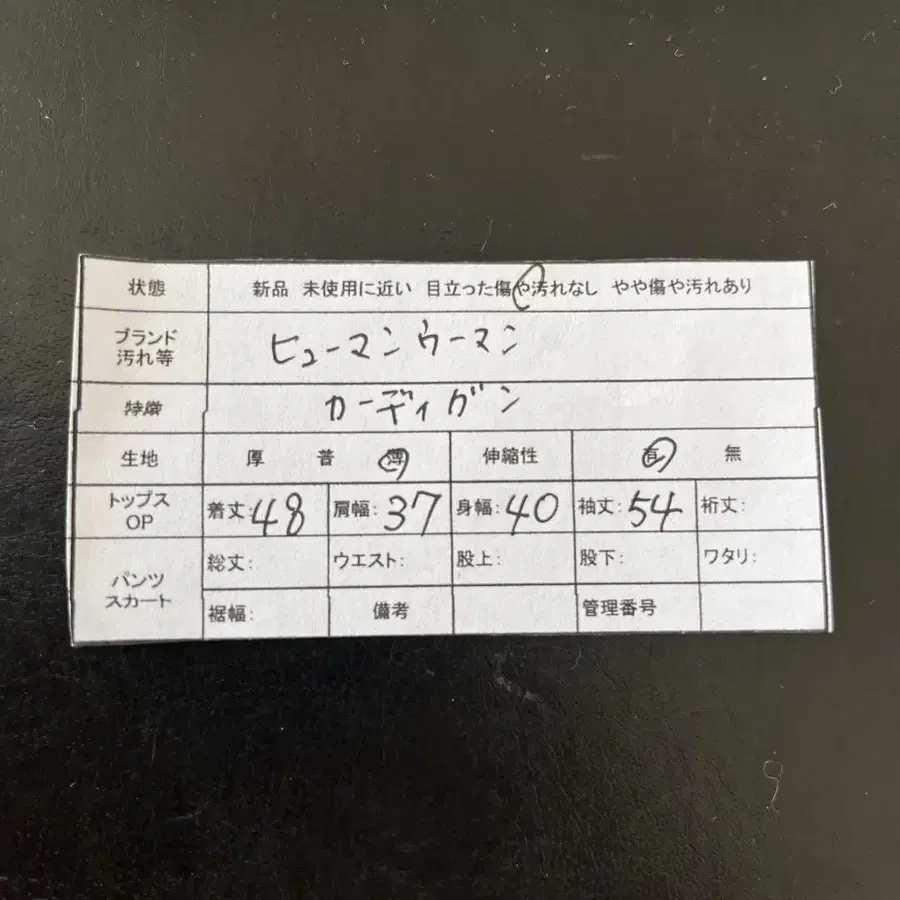 状態 新品 未使用に近い 目立った傷や汚れなし やや傷や汚れあり
ブランド 汚れ等 ヒューマンウーマン
特徴 カーディガン
生地 厚 普 薄 伸縮性 有 無
トップス OP 着丈:48 肩幅:37 身幅:40 袖丈:54 裄丈:
パンツ スカート 総丈: ウエスト: 股上: 股下: ワタリ:
裾幅: 備考 管理番号